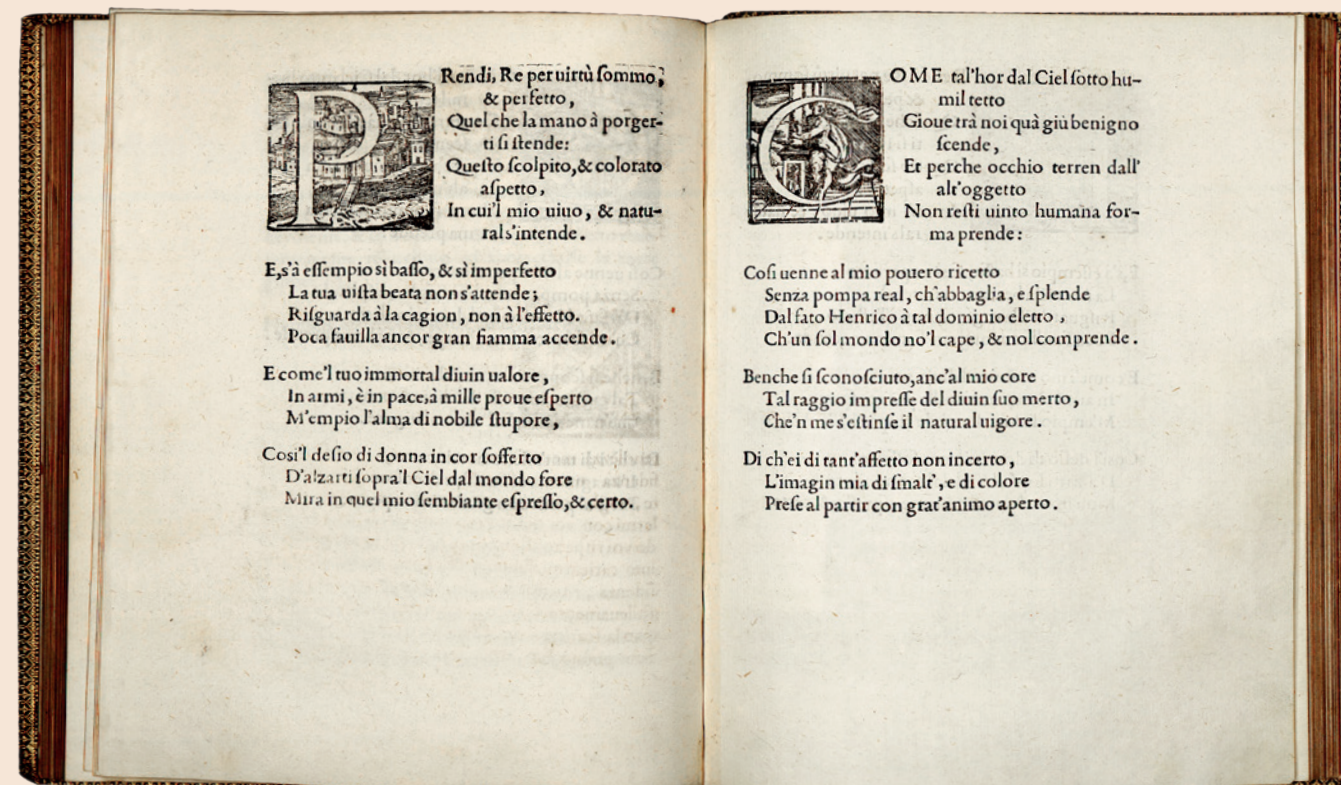 PRendi, Re per uirtù ſommo,
& perfetto,
Quel che la mano à porger-
ti ſi ſtende:
Queſto ſcolpito, & colorato
aſpetto,
In cui'l mio uiuo, & natu-
ral s'intende.
E, s'à eſſempio sì baſſo, & sì imperfetto
La tua uiſta beata non s'attende;
Riſguarda à la cagion, non à l'effetto.
Poca fauilla ancor gran fiamma accende.
E come'l tuo immortal diuin ualore,
In armi, è in pace, à mille proue eſperto
M'empio l'alma di nobile ſtupore,
Cosi'l deſio di donna in cor ſofferto
D'alzarti ſopra'l Ciel dal mondo fore
Mira in quel mio ſembiante eſpreſſo, & certo.
COME tal'hor dal Ciel ſotto hu-
mil tetto
Gioue trà noi quà giù benigno
ſcende,
Et perche occhio terren dall'
alt'oggetto
Non reſti uinto humana for-
ma prende:
Coſi uenne al mio pouero ricetto
Senza pompa real, ch'abbaglia, e ſplende
Dal fato Henrico à tal dominio eletto,
Ch'un ſol mondo no'l cape, & nol comprende.
Benche ſi ſconoſciuto, anc'al mio core
Tal raggio impreſſe del diuin ſuo merto,
Che'n me s'eſtinſe il natural uigore.
Di ch'ei di tant'affetto non incerto,
L'imagin mia di ſmalt', e di colore
Preſe al partir con grat'animo aperto.